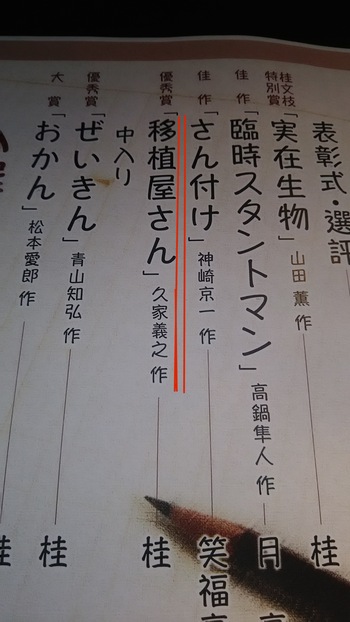 表彰式・選評
桂文枝特別賞「実在生物」山田 薫 作 桂
佳 作「臨時スタントマン」高鍋隼人 作 月
佳 作「さん付け」神崎京一 作 笑福
優秀賞「移植屋さん」久家義之 作 桂
中入り
優秀賞「ぜいきん」青山知弘 作 桂
大 賞「おかん」松本愛郎 作 桂